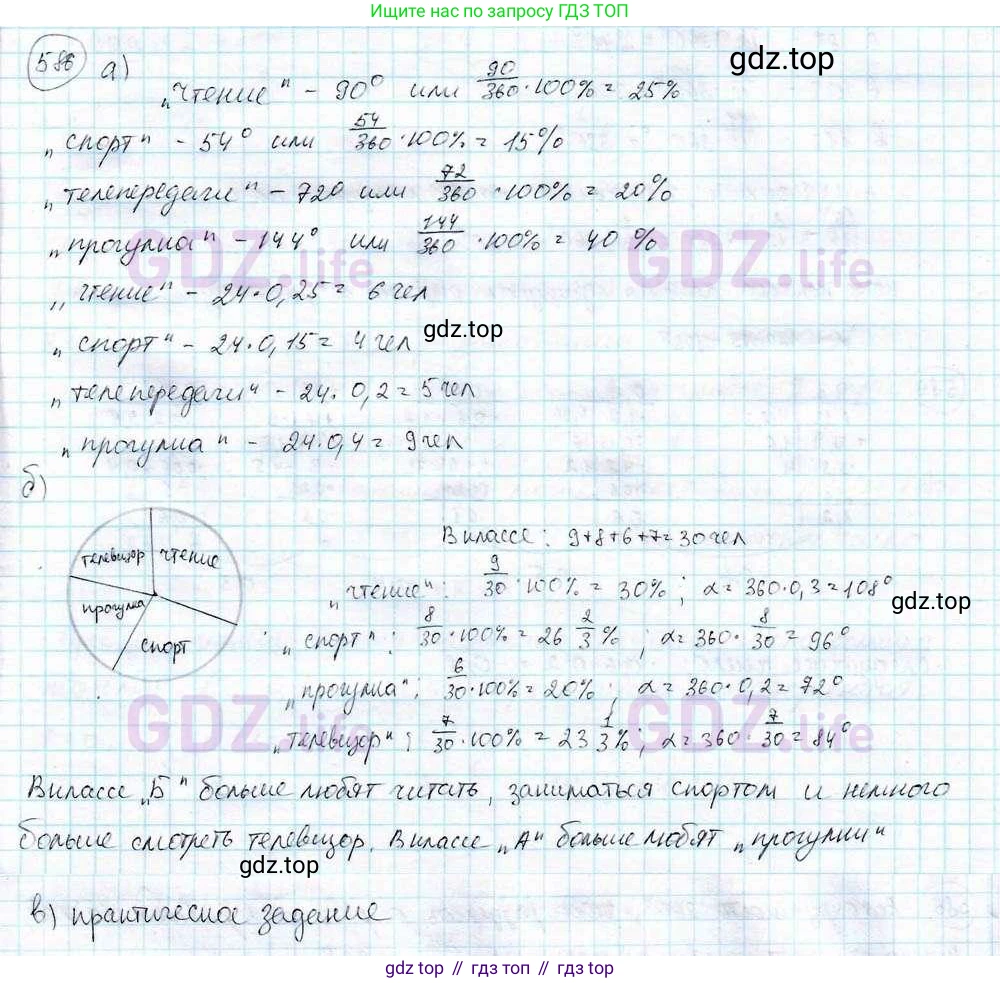 Ищите по запросу ГДЗ ТОП
586 а)
gdz.top
„чтение" - 90° или 90/360 · 100% = 25%
„спорт" - 54° или 54/360 · 100% = 15%
„телепередачи" - 720 или 72/360 · 100% = 20%
„прогулка" - 144° или 144/360 · 100% = 40 %
GDZ.life GDZ.life
„чтение" - 24·0,25 = 6 чел
gdz.top
„спорт" - 24·0,15 = 4 чел
„телепередачи" - 24·0,2 = 5 чел
„прогулка" - 24·0,4 = 9 чел
б)
телевизор чтение
прогулка
спорт
В классе: 9+8+6+7=30 чел
„чтение": 9/30 · 100% = 30% ; α = 360·0,3 = 108°
gdz.top
„спорт": 8/30 · 100% = 26 2/3 % ; α = 360 · 8/30 = 96°
„прогулка": 6/30 · 100% = 20% ; α = 360·0,2 = 72°
GDZ.life GDZ.life
„телевизор": 7/30 · 100% = 23 1/3 % ; α = 360 · 7/30 = 84°
В классе „Б" больше любят читать, заниматься спортом и немного
больше смотреть телевизор. В классе „А" больше любят „прогулки"
gdz.top
в) практическое задание
gdz top // гдз топ // gdz top